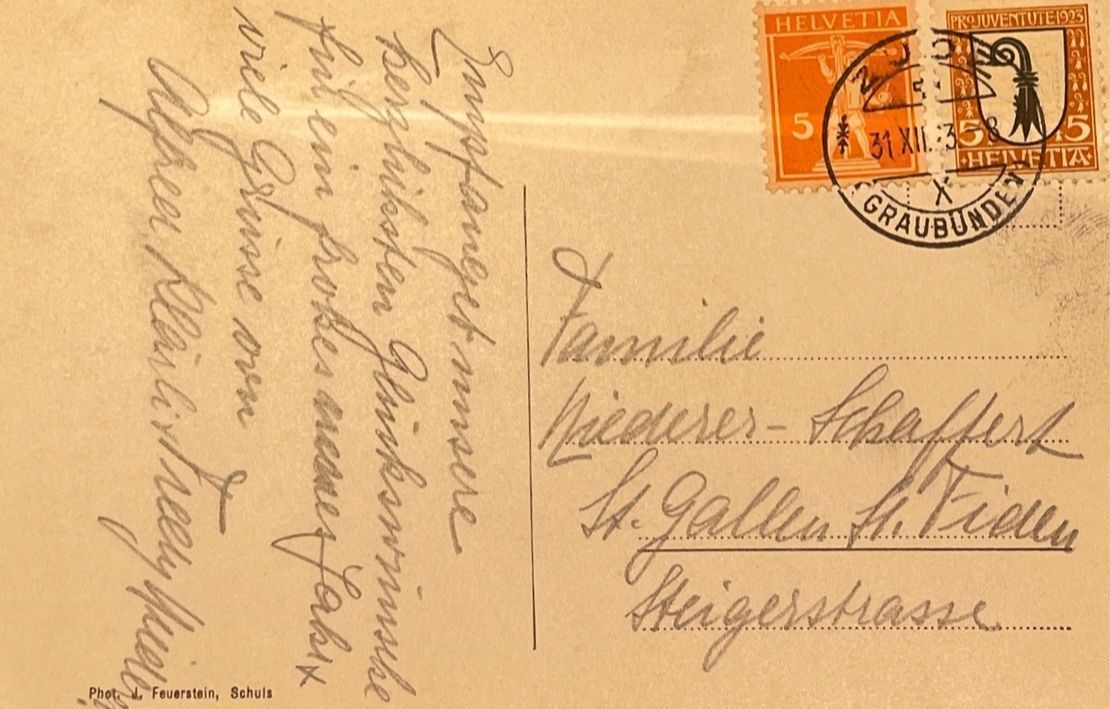 Empfanget unsere
herzlichsten Glückswünsche
für ein frohes neues Jahr
viele Grüsse von
Familie
Niederer-Schaffert
St. Gallen St. Fiden
Steigerstrasse
HELVETIA
5
PRO JUVENTUTE 1923
5 5
HELVETIA
31 XII. 23 - 8
X
(GRAUBÜNDEN)
Phot. J. Feuerstein, Schuls